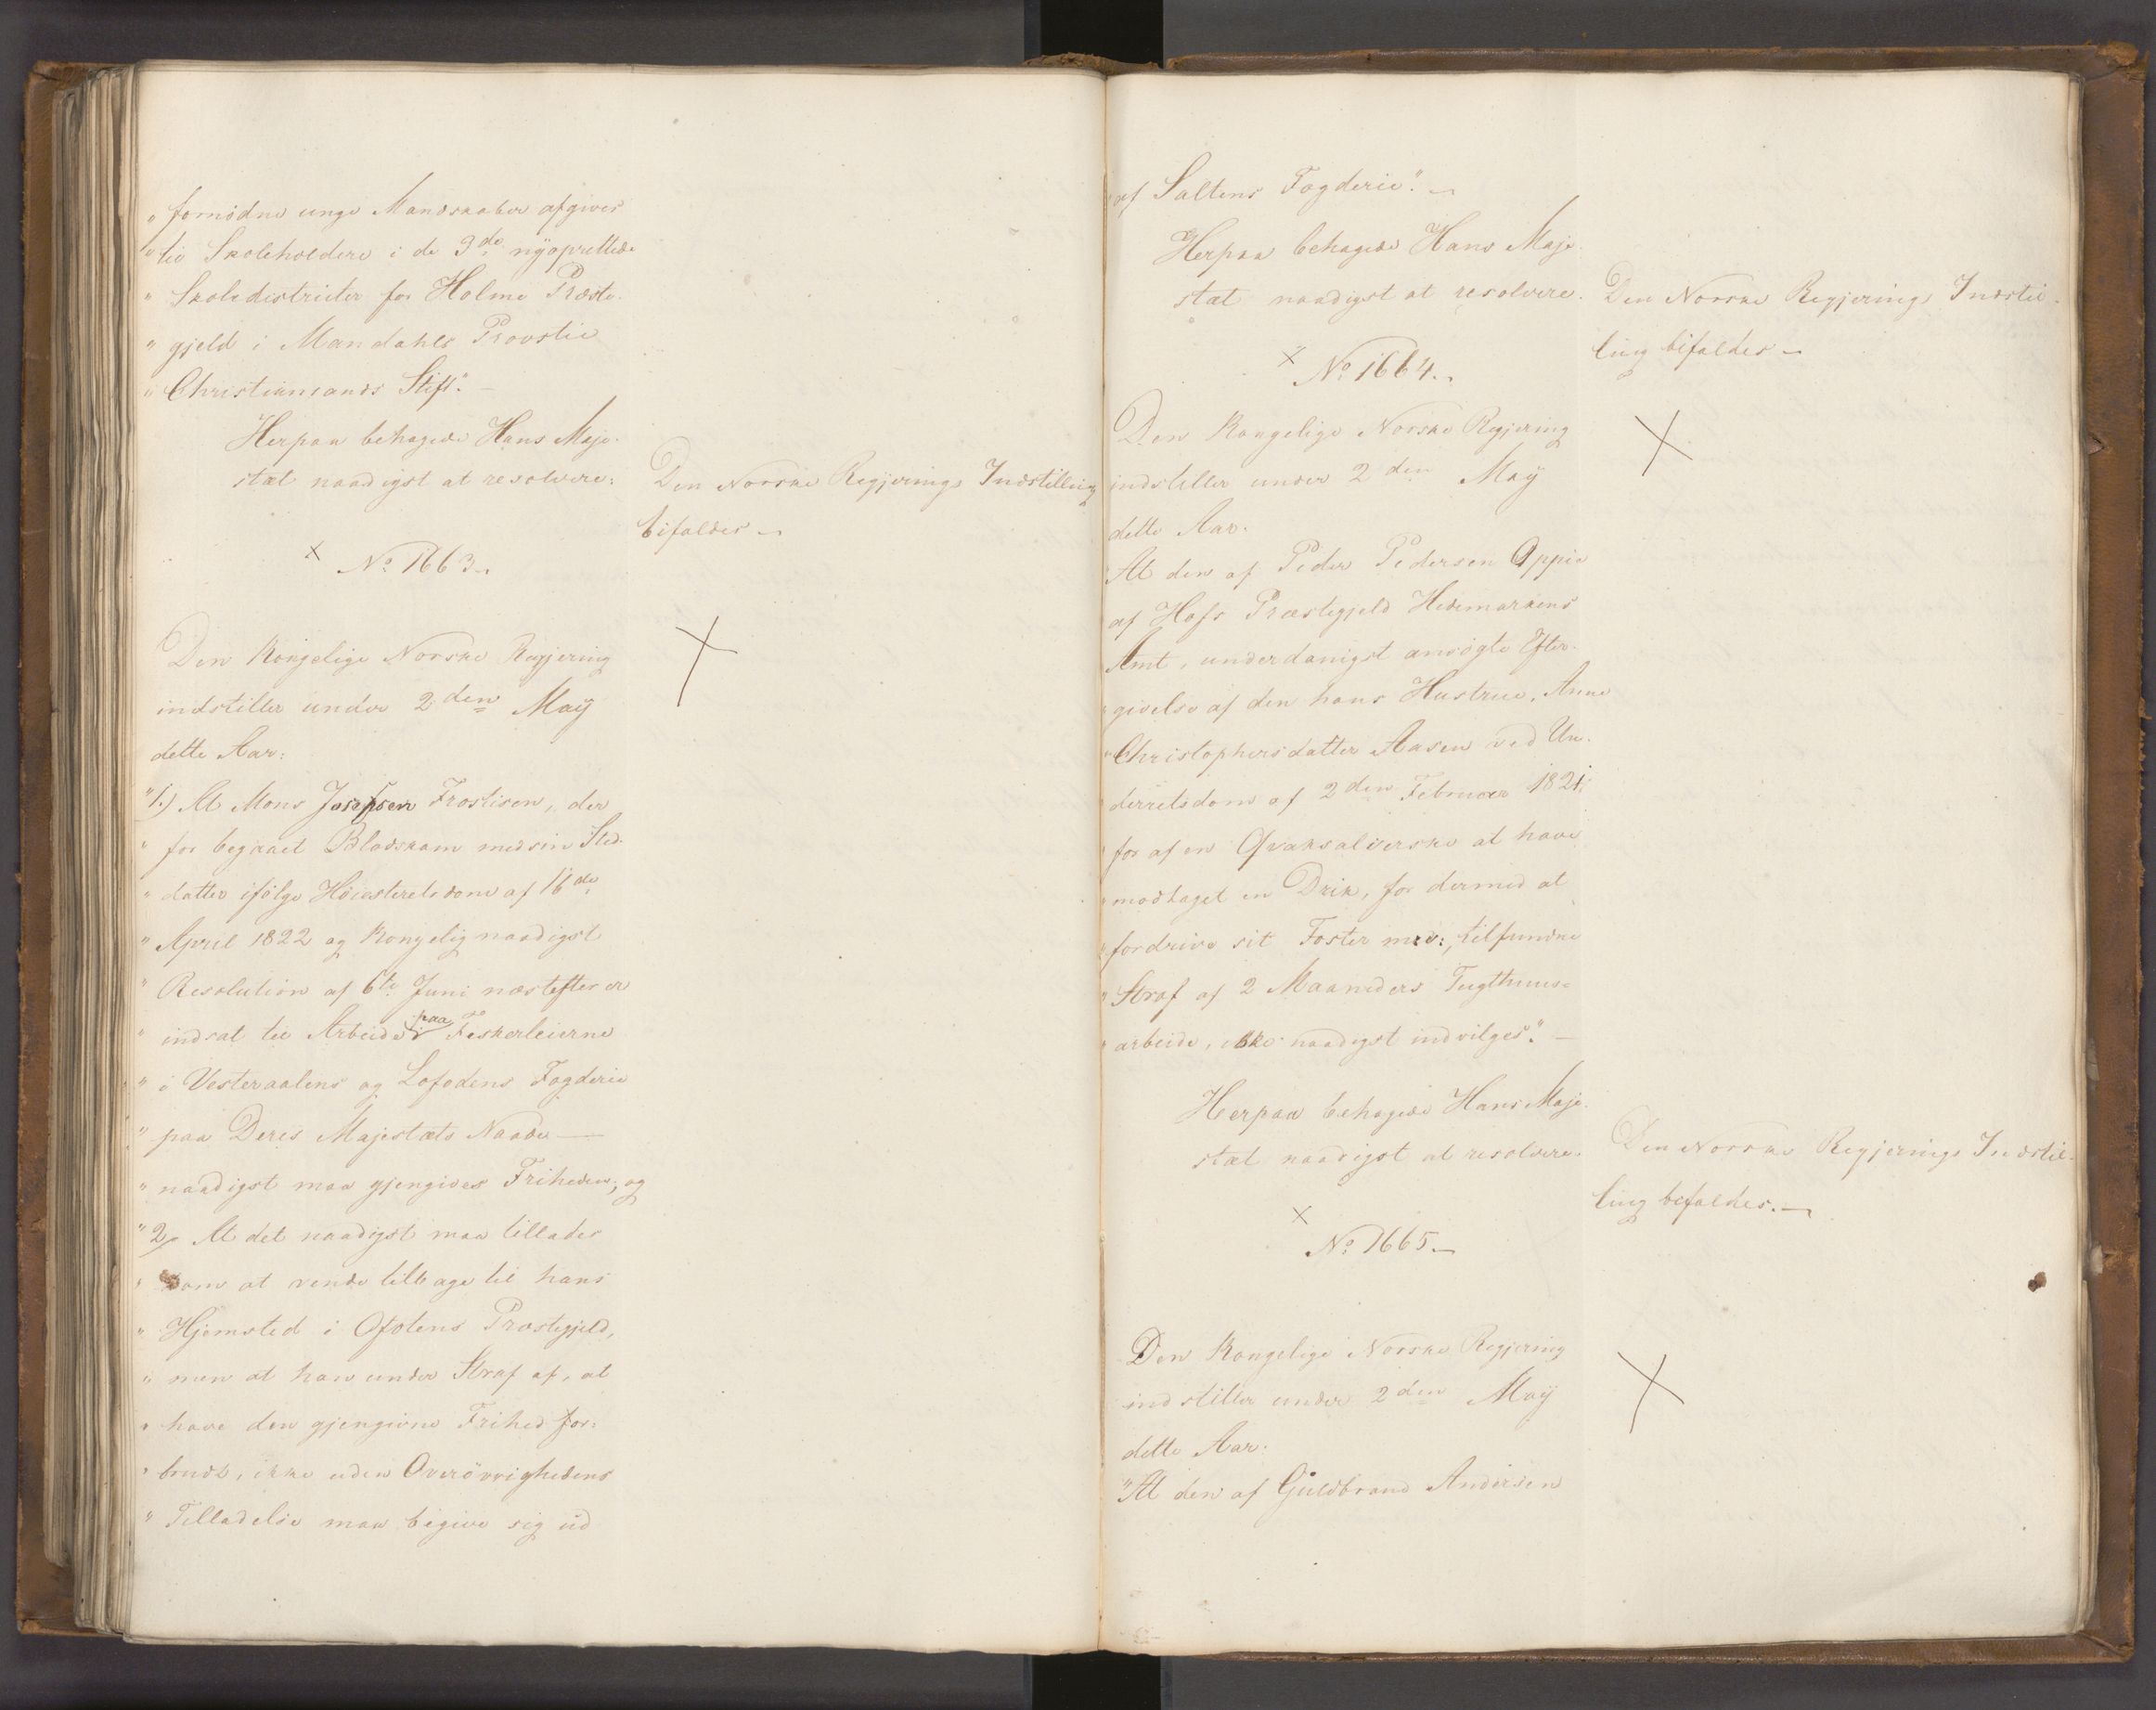 "fornödne unge Mandskaber afgives
"til Skoleholdere i de 3de nÿoprettede
"Skoledistricter for Holme Præste-
"gjeld i Mandahls Provstie
"Christiansands Stift." —
Herpaa behagede Hans Maje-
stæt naadigst at resolvere:
Den Norske Regjerings Indstilling
bifaldes —
x No 1663.
Den Kongelige Norske Regjering
indstiller under 2den Maÿ
dette Aar:
"1.) At Mons Josephsen Frostisen, der
"for begaaet Blodskam med sin Sted-
"datter ifölge Höiesteretsdom af 16de
"April 1822 og Kongelig naadigst
"Resolution af 6te Juni næstefter er
"indsat til Arbeide i paa Feskerleierne
"i Vesteraalens og Lofodens Fogderie
"paa Deres Majestæts Naade —
"naadigst maa gjengives Friheden; og
"2, At det naadigst maa tillades
"ham at vende tilbage til hans
"Hjemsted i Ofotens Præstegjeld,
"men at han under Straf af, at
"have den gjengivne Frihed for-
"brudt, ikke uden Overövrighedens
"Tilladelse maa begive sig ud
"af Saltens Fogderie." —
Herpaa behagede Hans Maje-
stæt naadigst at resolvere.
Den Norske Regjerings Indstil-
ling bifaldes —
x No 1664.
Den Kongelige Norske Regjering
indstiller under 2den Maÿ
dette Aar.
"At den af Peder Pedersen Oppie
af Hofs Præstegjeld Hedemarkens
Amt, underdanigst ansögte Efter-
"givelse af den hans Hustrue, Anne
"Christophersdatter Aasen ved Un-
"derretsdom af 2den Februar 1821;
"for af en Qvaksalverske at have
"modtaget en Drik, for dermed at
"fordrive sit Foster med:, tilfundne
"Straf af 2 Maaneders Tugthuus-
"arbeide, ikke naadigst indvilges." —
Herpaa behagede Hans Maje-
stæt naadigst at resolvere.
Den Norske Regjerings Indstil-
ling befaldes. —
x
No 1665. —
Den Kongelige Norske Regjering
indstiller under 2den Maÿ
dette Aar.
"At den af Guldbrand Andersen